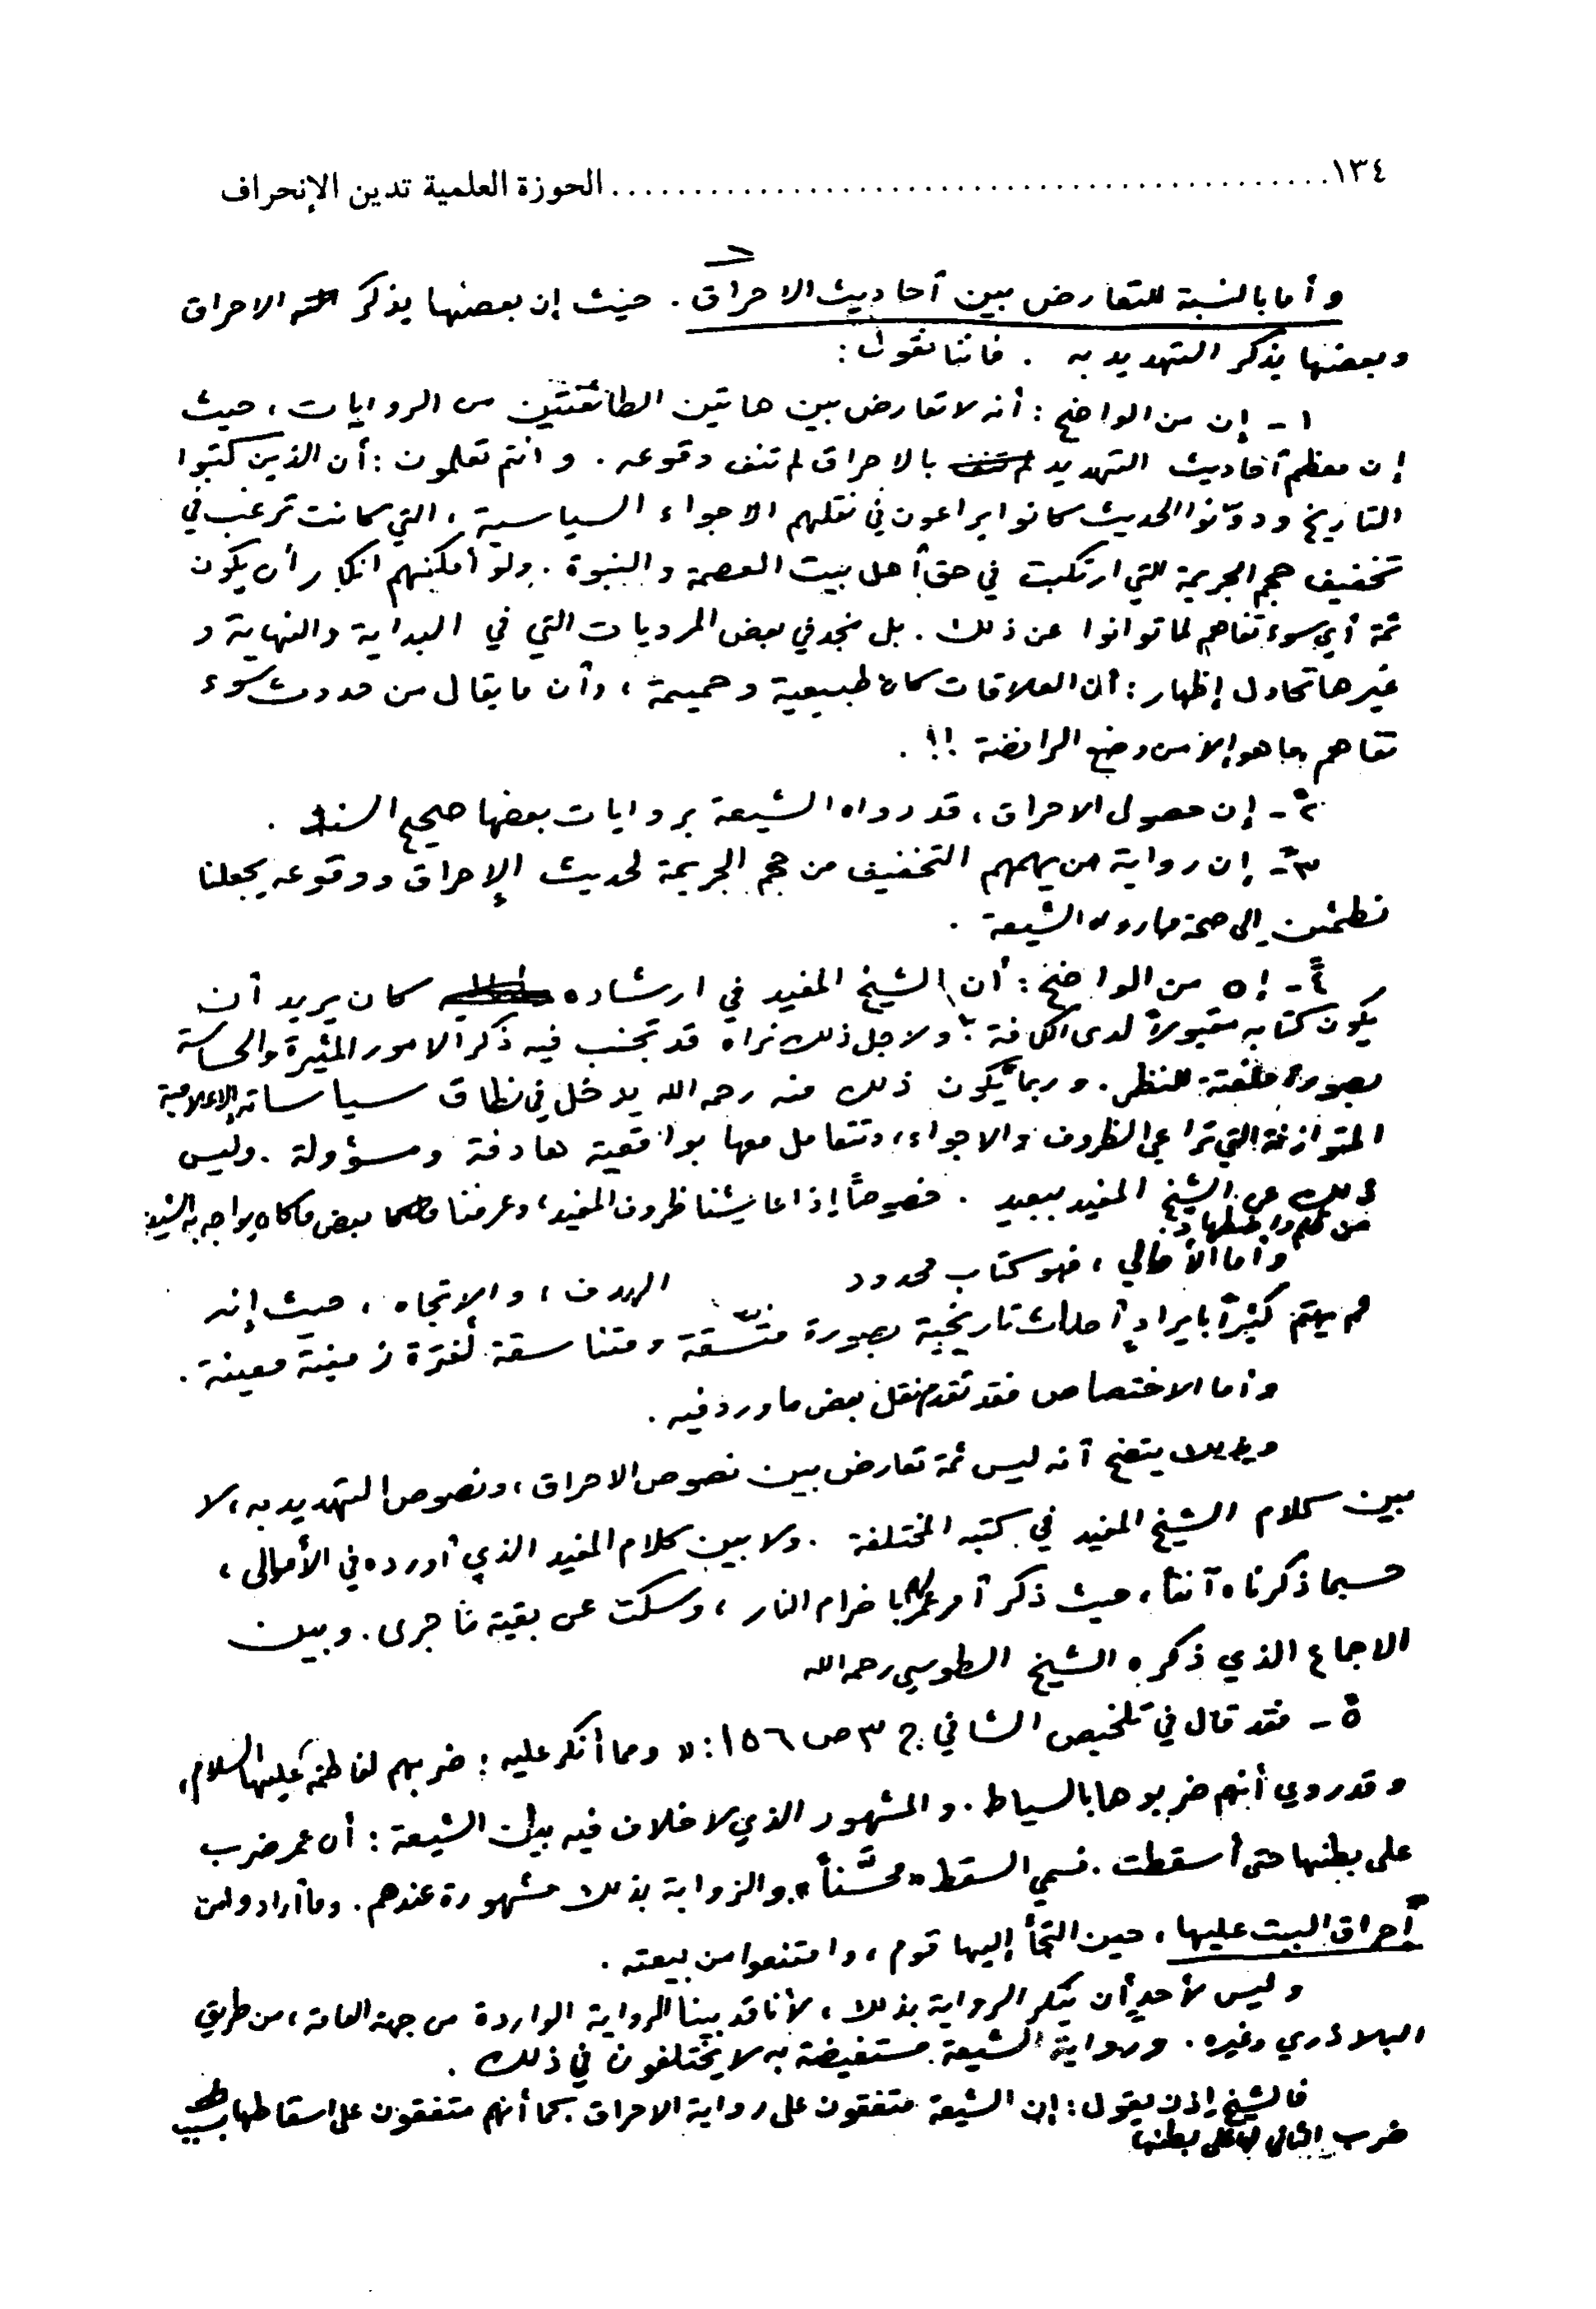 ١٣٤ ........................................... الحوزة العلمية تدين الإنحراف
٦
وأما بالنسبة للتعارض بين أحاديث الاحراق . حيث إن بعضها يذكر الاحراق
وبعضها يذكر التهديد به . فاننا نقول :
١ - إن من الواضح : أنه لا تعارض بين هاتين الطائفتين من الروايات ، حيث
إن معظم أحاديث التهديد بالاحراق لم تنف وقوعه . وانتم تعلمون : أن الذين كتبوا
التاريخ ودوّنوا الحديث كانوا يراعون في نقلهم الاجواء السياسية ، التي كانت ترغب في
تخفيف حجم الجريمة التي ارتكبت في حق أهل بيت العصمة والنبوة . ولو أمكنهم انكار أن يكون
ثمة أي سوء تفاهم لما توانوا عن ذلك . بل نجد في بعض المرويات التي في البداية والنهاية و
غيرها تحاول إظهار : أن العلاقات كانت طبيعية وحميمة ، وأن ما يقال من حدوث سوء
تفاهم ما هو إلا من وضع الرافضة !! .
٢ - إن حصول الاحراق ، قد رواه الشيعة بروايات بعضها صحيح السند .
٣ - إن رواية من يهمهم التخفيف من حجم الجريمة لحديث الإحراق ووقوعه يجعلنا
نطمئن إلى صحة ما رواه الشيعة .
٤ - إن من الواضح : أن الشيخ المفيد في ارشاده كان يريد أن
يكون كتابه مقبولاً لدى الكافة ؛ ولاجل ذلك نراه قد تجنب فيه ذكر الامور المثيرة والحساسة
بصورة ملفتة للنظر . وربما يكون ذلك منه رحمه الله يدخل في نطاق سياساته الاعلامية
المتوازنة التي تراعي الظروف والاجواء ، وتتعامل معها بواقعية هادفة ومسؤولة . وليس
ذلك عن الشيخ المفيد ببعيد . خصوصاً إذا عايشنا ظروف المفيد ، وعرفنا بعض ما كان يواجه به الشيعة
من ظلم واضطهاد .
وأما الأمالي ، فهو كتاب محدود الهدف ، والاتجاه ، حيث إنه
لم يهتم كثيراً بايراد أحداث تاريخية بصورة متّسقة ومتناسقة لفترة زمنية معينة .
وأما الاختصاص فقد تقدم نقل بعض ما ورد فيه .
وبذلك يتضح أنه ليس ثمة تعارض بين نصوص الاحراق ، ونصوص التهديد به ، لا
بين كلام الشيخ المفيد في كتبه المختلفة . ولا بين كلام المفيد الذي أورده في الأمالي ،
حسبما ذكرناه آنفاً ، حيث ذكر أمر عمر باضرام النار ، وسكت عن بقية ما جرى . وبين
الاجماع الذي ذكره الشيخ الطوسي رحمه الله
٥ - فقد قال في تلخيص الشافي ج ٣ ص ١٥٦ : « ومما أنكر عليه : ضربهم لفاطمة عليها السلام ،
وقد روي أنهم ضربوها بالسياط . والمشهور الذي لا خلاف فيه بين الشيعة : أن عمر ضرب
على بطنها حتى أسقطت . فسمي السقط « محسّناً » . والرواية بذلك مشهورة عندهم . وما أرادوا من
أحراق البيت عليها ، حين التجأ إليها قوم ، وامتنعوا من بيعته .
وليس لأحد أن ينكر الرواية بذلك ، لأنا قد بينا الرواية الواردة من جهة العامة ، من طريق
البلاذري وغيره . ورواية الشيعة مستفيضة به لا يختلفون في ذلك .
فالشيخ إذن يقول : إن الشيعة متفقون على رواية الاحراق . كما أنهم متفقون على اسقاطها بسبب
ضرب الثاني لها على بطنها